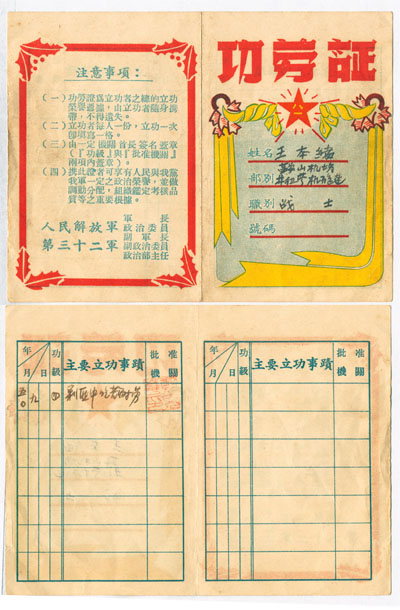 注意事項：
（一）功劳證爲立功者之總的立功
榮譽憑証，由立功者隨身携
帶，不得遺失。
（二）立功者每人一份，立功一次
即填寫一格。
（三）由一定機關首長簽名蓋章
（『功級』與『批准機關』
兩項內蓋章）。
（四）携此證者可享有人民與我黨
我軍一定之政治榮譽，並做
調動分配，組織鑑定考核品
質等之重要根據。
人民解放軍
第三十二軍
軍長
政治委員
副軍長
副政治委員
政治部主任
功劳証
姓名 王本緒
部別
職別 战士
號碼
年 月 日
功級
主要立功事蹟
批准機關
五〇 九
年 月 日
功級
主要立功事蹟
批准機關